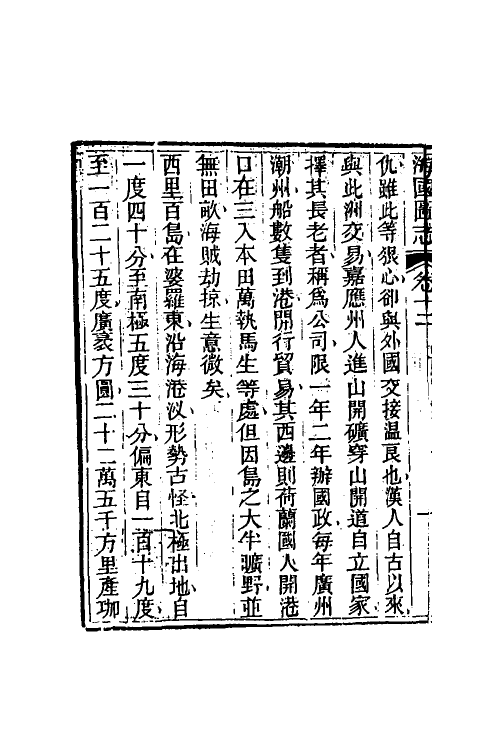 海國圖志 卷十二
仇雖此等狠心卻與外國交接溫良也漢人自古以來
與此洲交易嘉應州人進山開礦穿山開道自立國家
擇其長老者稱爲公司限一年二年辦國政每年廣州
潮州船數隻到港開行貿易其西邊則荷蘭國人開港
口在三入本田萬執馬生等處但因島之大半曠野並
無田畝海賊劫掠生意微矣
西里百島在婆羅東沿海港汊形勢古怪北極出地自
一度四十分至南極五度三十分偏東自一百十九度
至一百二十五度廣袤方圓二十二萬五千方里產珈